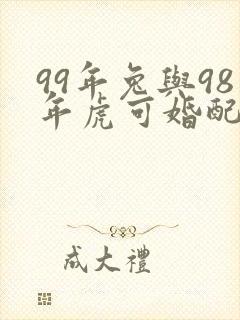 99年兔與98
年虎可婚配
成大禮